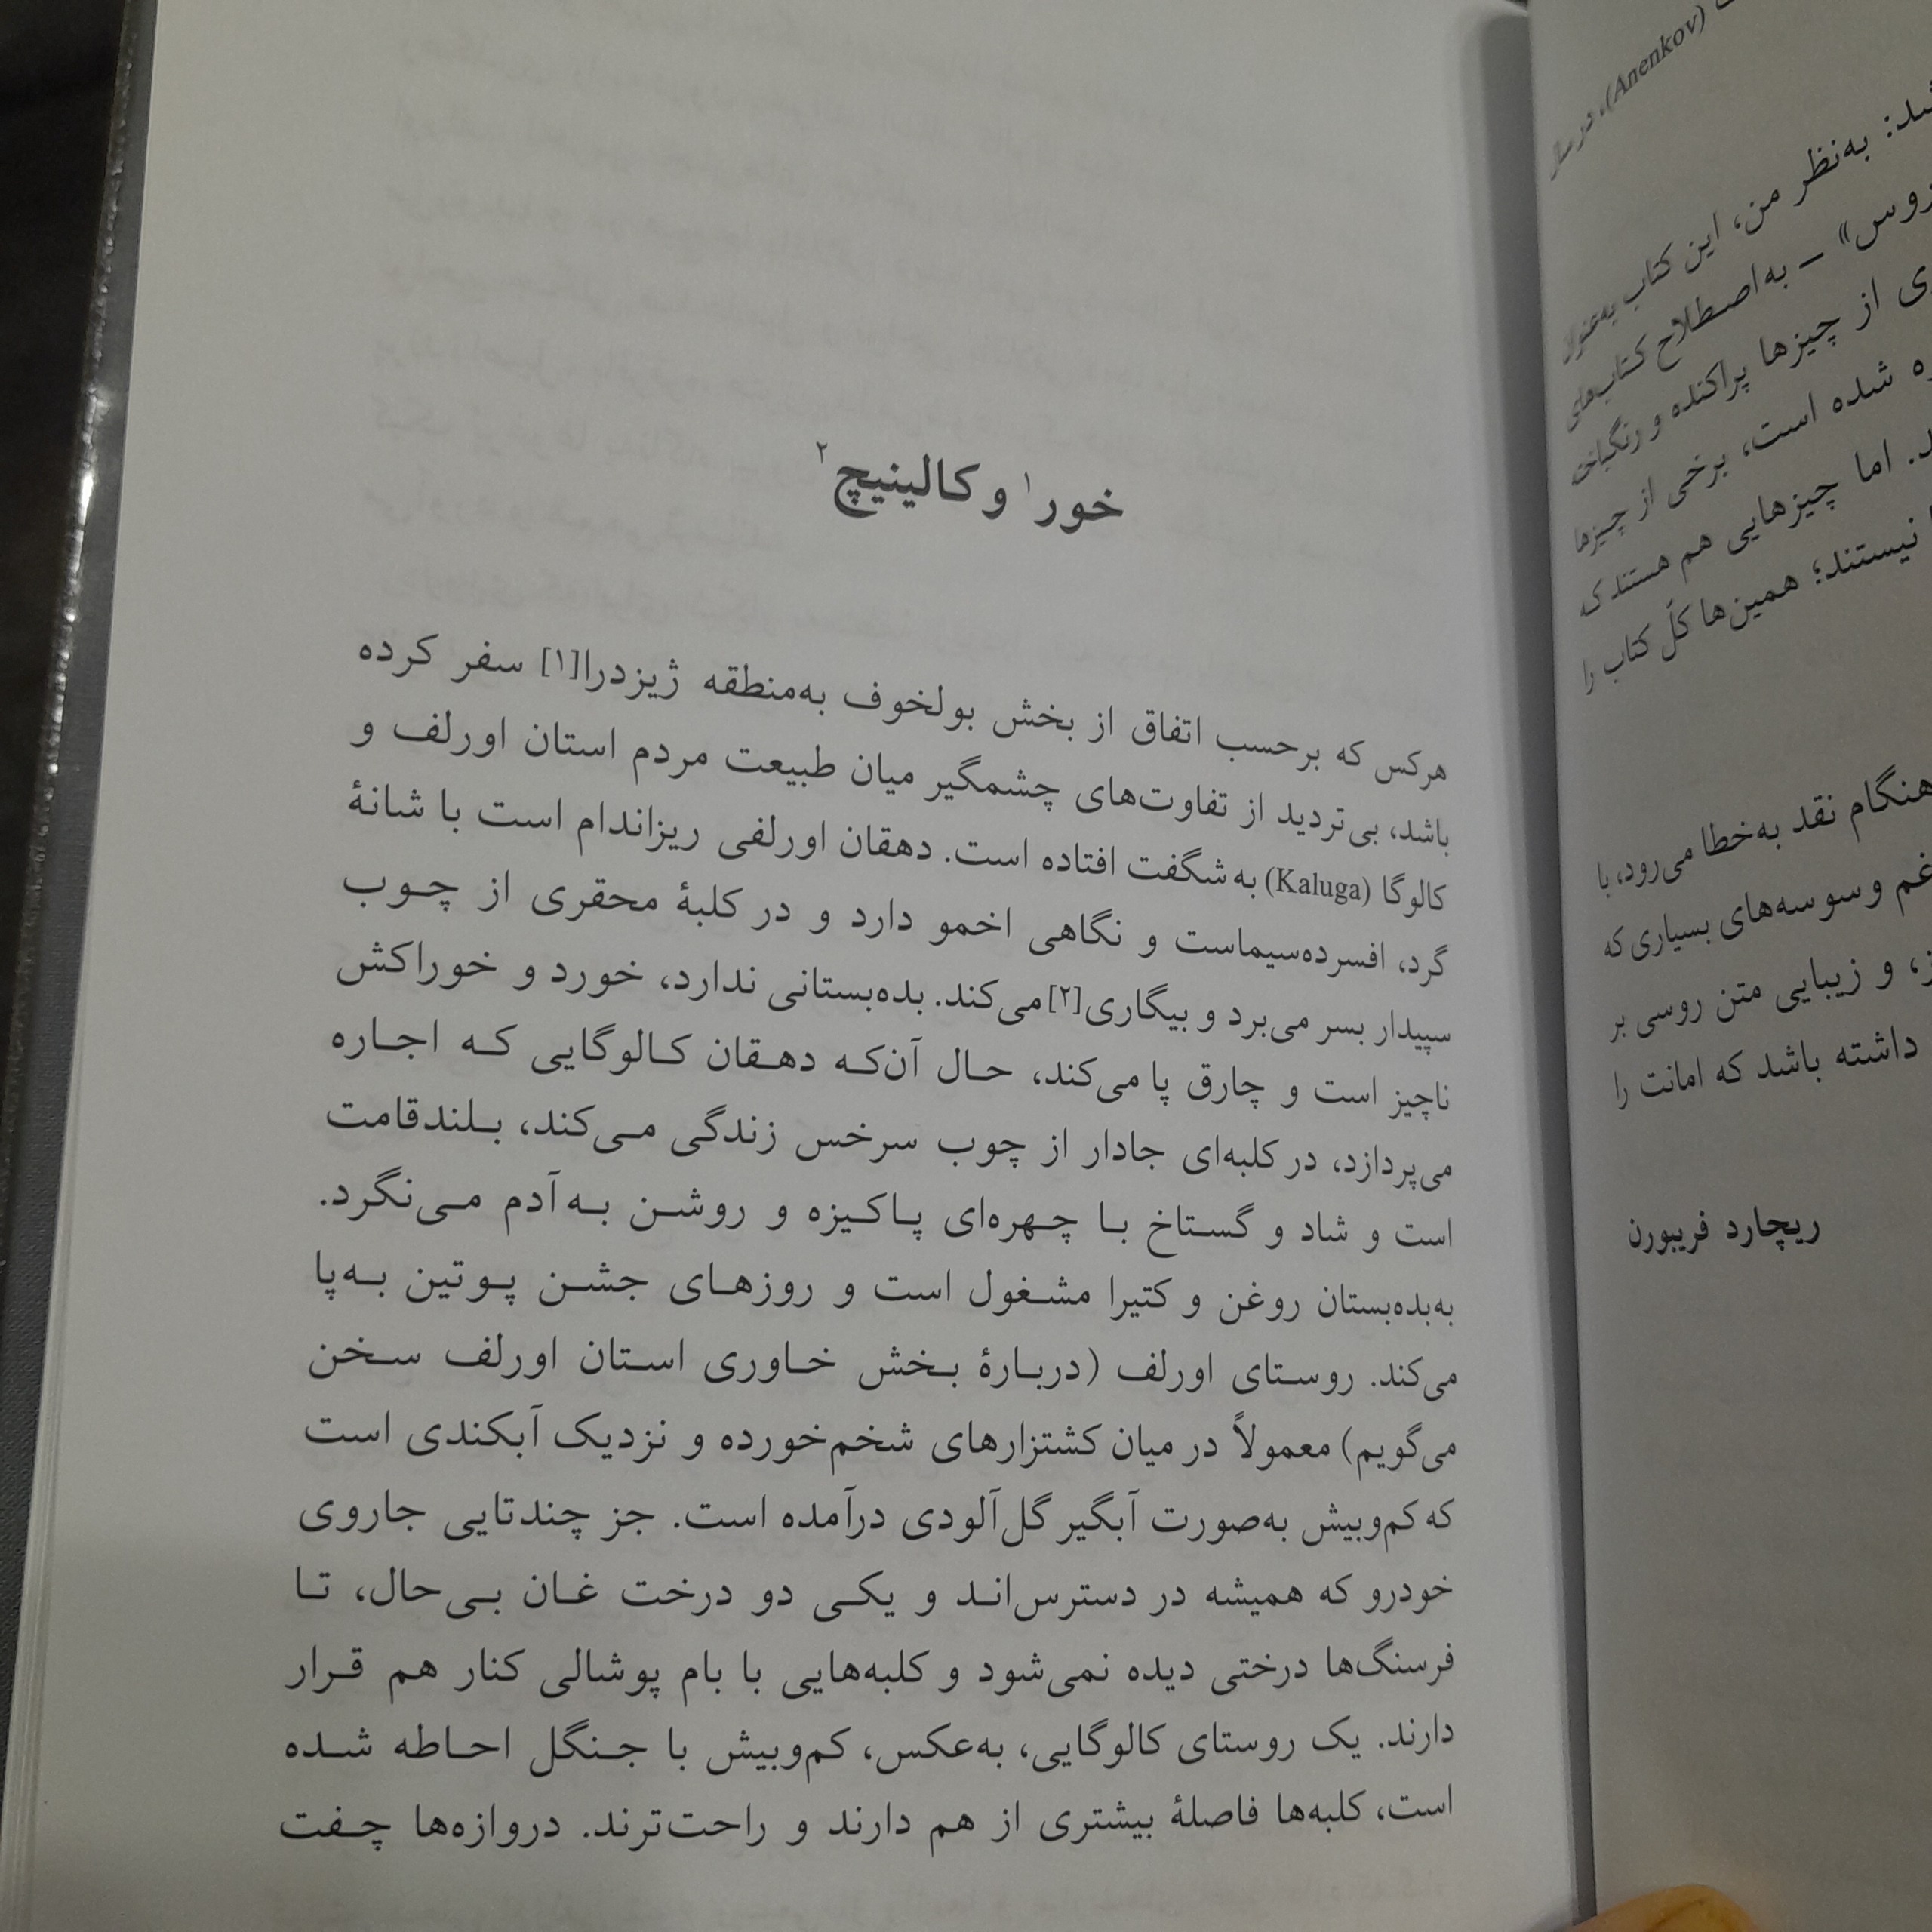 (Anenkov)، در سال
شد: به‌نظر من، این کتاب به‌عنوان
روس» – به‌اصطلاح کتاب‌های
ی از چیزها پراکنده و رنگباخته
ه شده است، برخی از چیزها
د. اما چیزهایی هم هستند که
نیستند؛ همین‌ها کلّ کتاب را
هنگام نقد به‌خطا می‌رود، با
غم وسوسه‌های بسیاری که
ز، و زیبایی متن روسی بر
داشته باشد که امانت را
ریچارد فریبورن
خور۱ و کالینیچ۲
هرکس که برحسب اتفاق از بخش بولخوف به‌منطقه ژیزدرا[۱] سفر کرده
باشد، بی‌تردید از تفاوت‌های چشمگیر میان طبیعت مردم استان اورلف و
کالوگا (Kaluga) به شگفت افتاده است. دهقان اورلفی ریزاندام است با شانهٔ
گرد، افسرده‌سیماست و نگاهی اخمو دارد و در کلبهٔ محقری از چوب
سپیدار بسر می‌برد و بیگاری[۲] می‌کند. بده‌بستانی ندارد، خورد و خوراکش
ناچیز است و چارق پا می‌کند، حال آن‌که دهقان کالوگایی که اجاره
می‌پردازد، در کلبه‌ای جادار از چوب سرخس زندگی می‌کند، بلندقامت
است و شاد و گستاخ با چهره‌ای پاکیزه و روشن به آدم می‌نگرد.
به‌بده‌بستان روغن و کتیرا مشغول است و روزهای جشن پوتین به‌پا
می‌کند. روستای اورلف (دربارهٔ بخش خاوری استان اورلف سخن
می‌گویم) معمولاً در میان کشتزارهای شخم‌خورده و نزدیک آبکندی است
که کم‌وبیش به‌صورت آبگیر گل‌آلودی درآمده است. جز چندتایی جاروی
خودرو که همیشه در دسترس‌اند و یکی دو درخت غان بی‌حال، تا
فرسنگ‌ها درختی دیده نمی‌شود و کلبه‌هایی با بام پوشالی کنار هم قرار
دارند. یک روستای کالوگایی، به‌عکس، کم‌وبیش با جنگل احاطه شده
است، کلبه‌ها فاصلهٔ بیشتری از هم دارند و راحت‌ترند. دروازه‌ها چفت